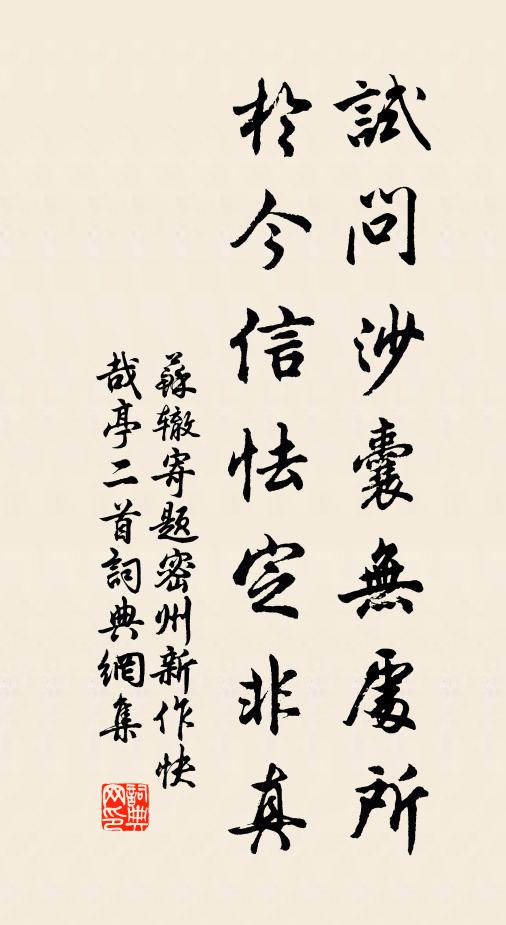 試問沙囊無處所
於今信怯定非真
蘇辙寄題密州新作快
哉亭二首詞典網集
詞典
网印